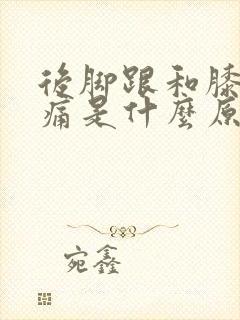 後脚跟和膝
痛是什麼原
宛鑫